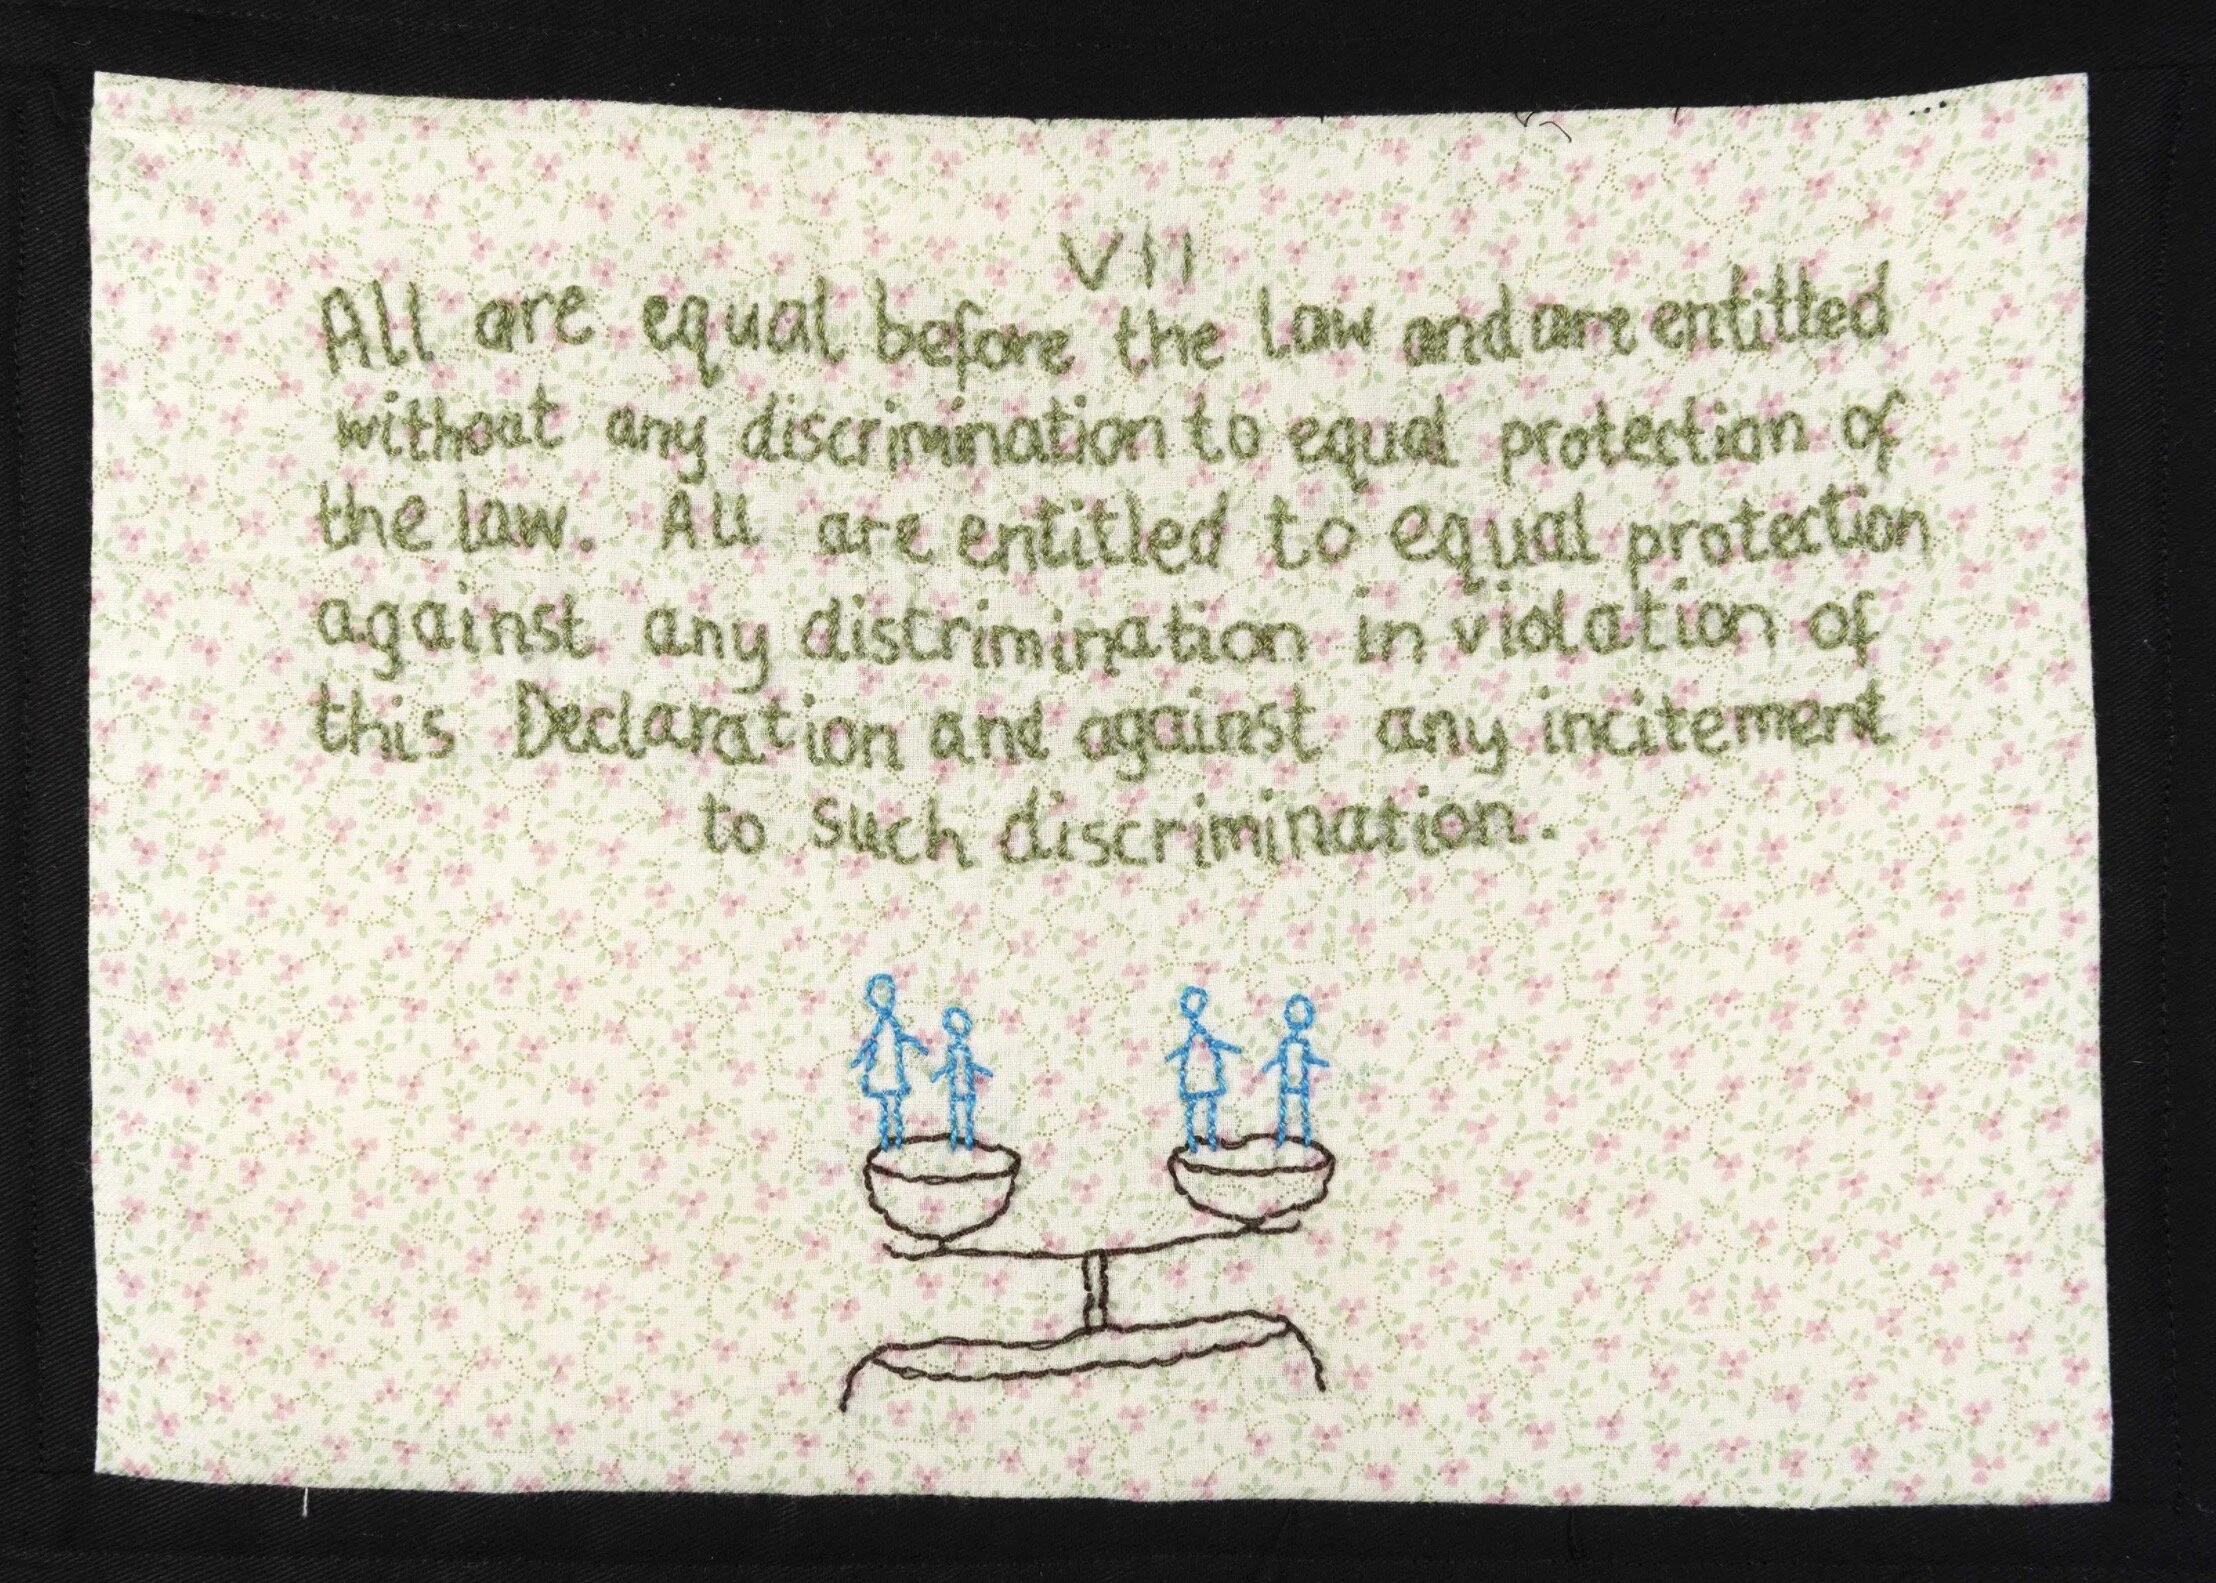 VII
All are equal before the law and are entitled
without any discrimination to equal protection of
the law. All are entitled to equal protection
against any discrimination in violation of
this Declaration and against any incitement
to such discrimination.